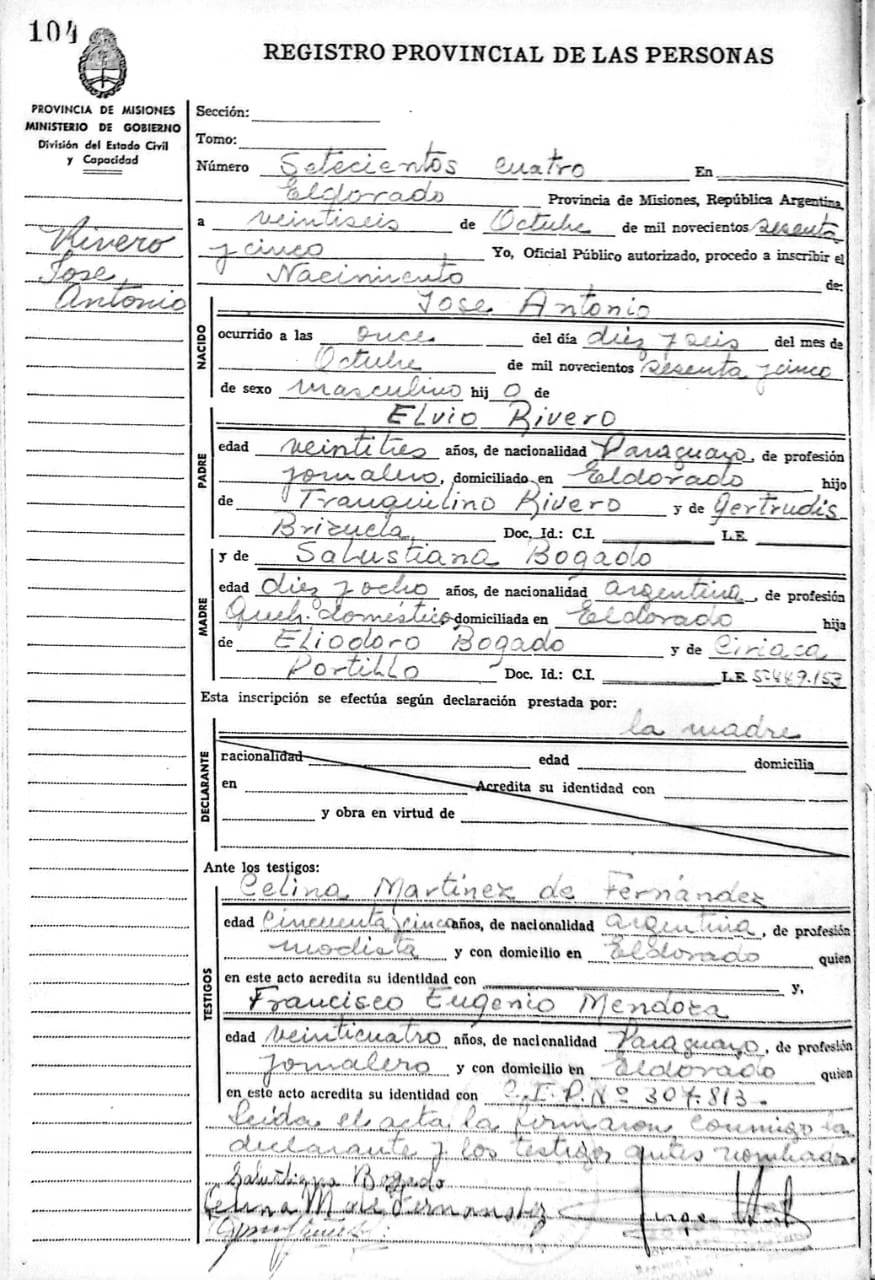 104
REGISTRO PROVINCIAL DE LAS PERSONAS
PROVINCIA DE MISIONES
MINISTERIO DE GOBIERNO
División del Estado Civil
y Capacidad
Rivero
Jose
Antonio
Sección:
Tomo:
Número Setecientos cuatro En
Eldorado Provincia de Misiones, República Argentina,
a veintiseis de Octubre de mil novecientos sesenta
y cinco Yo, Oficial Público autorizado, procedo a inscribir el
Nacimiento de:
Jose Antonio
NACIDO
ocurrido a las once del día diez y seis del mes de
Octubre de mil novecientos sesenta y cinco
de sexo masculino hij o de
Elvio Rivero
PADRE
edad veintitres años, de nacionalidad Paraguayo, de profesión
jornalero, domiciliado en Eldorado hijo
de Tranquilino Rivero y de Gertrudis
Brizuela Doc. Id.: C.I. L.E.
y de Salustiana Bogado
MADRE
edad diez y ocho años, de nacionalidad argentina, de profesión
Queh. doméstico, domiciliada en Eldorado hija
de Eliodoro Bogado y de Ciriaca
Portillo Doc. Id.: C.I. L.E. 5.449.153
Esta inscripción se efectúa según declaración prestada por:
la madre
DECLARANTE
nacionalidad edad domicilia
en Acredita su identidad con
y obra en virtud de
Ante los testigos:
Celina Martinez de Fernández
TESTIGOS
edad Cincuenta y cinco años, de nacionalidad argentina, de profesión
modista y con domicilio en Eldorado quien
en este acto acredita su identidad con y,
Francisco Eugenio Mendoza
edad veinticuatro años, de nacionalidad Paraguayo, de profesión
jornalero y con domicilio en Eldorado quien
en este acto acredita su identidad con C.I.P. Nº 307.813.
Leida el acta la firmaron conmigo la
declarante y los testigos antes nombrados.
Salustiana Bogado
Celina M de Fernandez